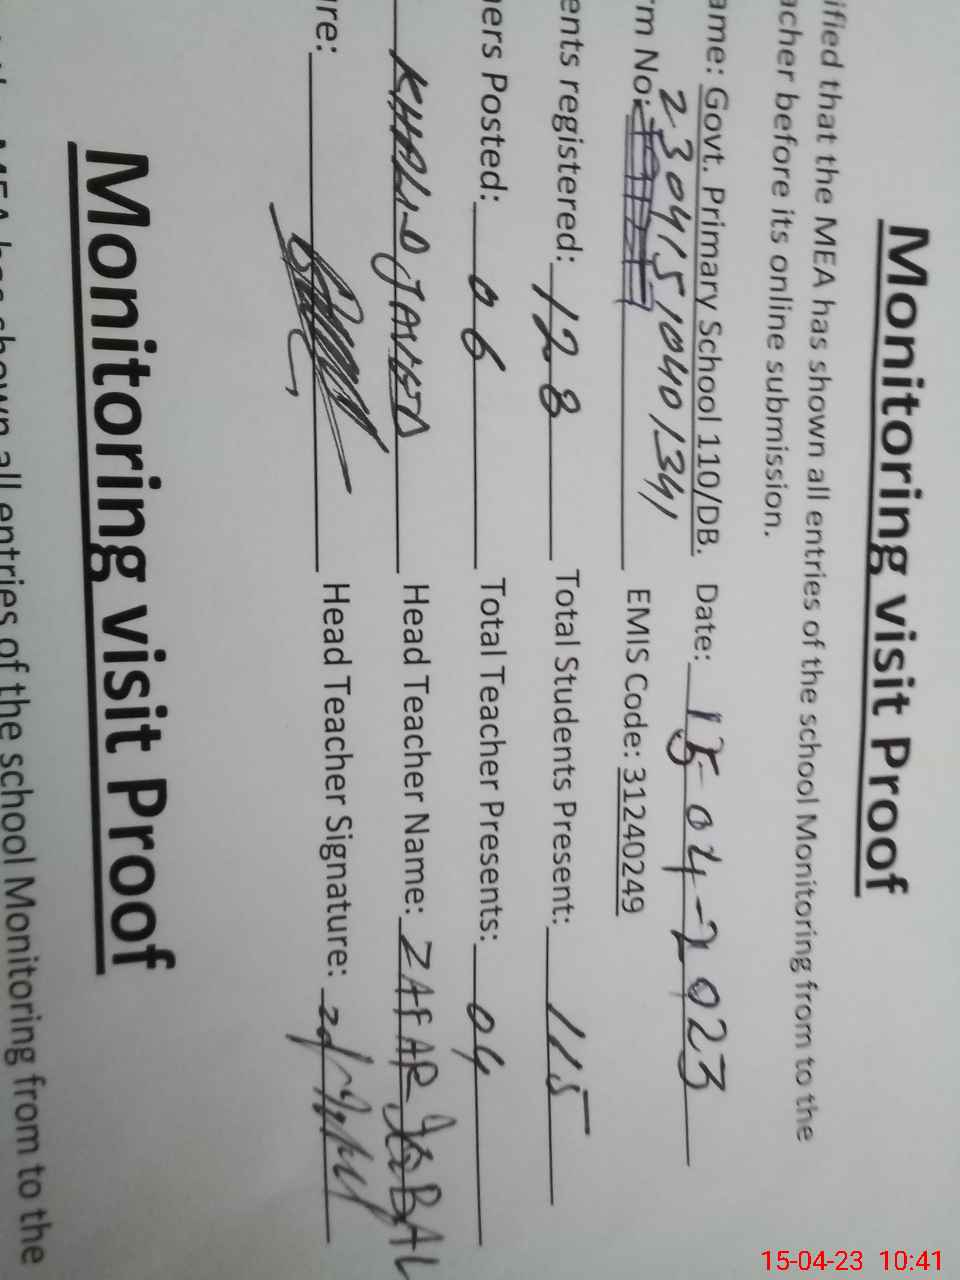 Monitoring visit Proof
ified that the MEA has shown all entries of the school Monitoring from to the
acher before its online submission.
ame: Govt. Primary School 110/DB. Date: 15-04-2023
rm No: 23041510401341 EMIS Code: 31240249
ents registered: 128 Total Students Present: 115
ners Posted: 06 Total Teacher Presents: 04
KHALID JAVED Head Teacher Name: ZAFAR IQBAL
re: Head Teacher Signature:
Monitoring visit Proof
MEA has shown all entries of the school Monitoring from to the
15-04-23 10:41